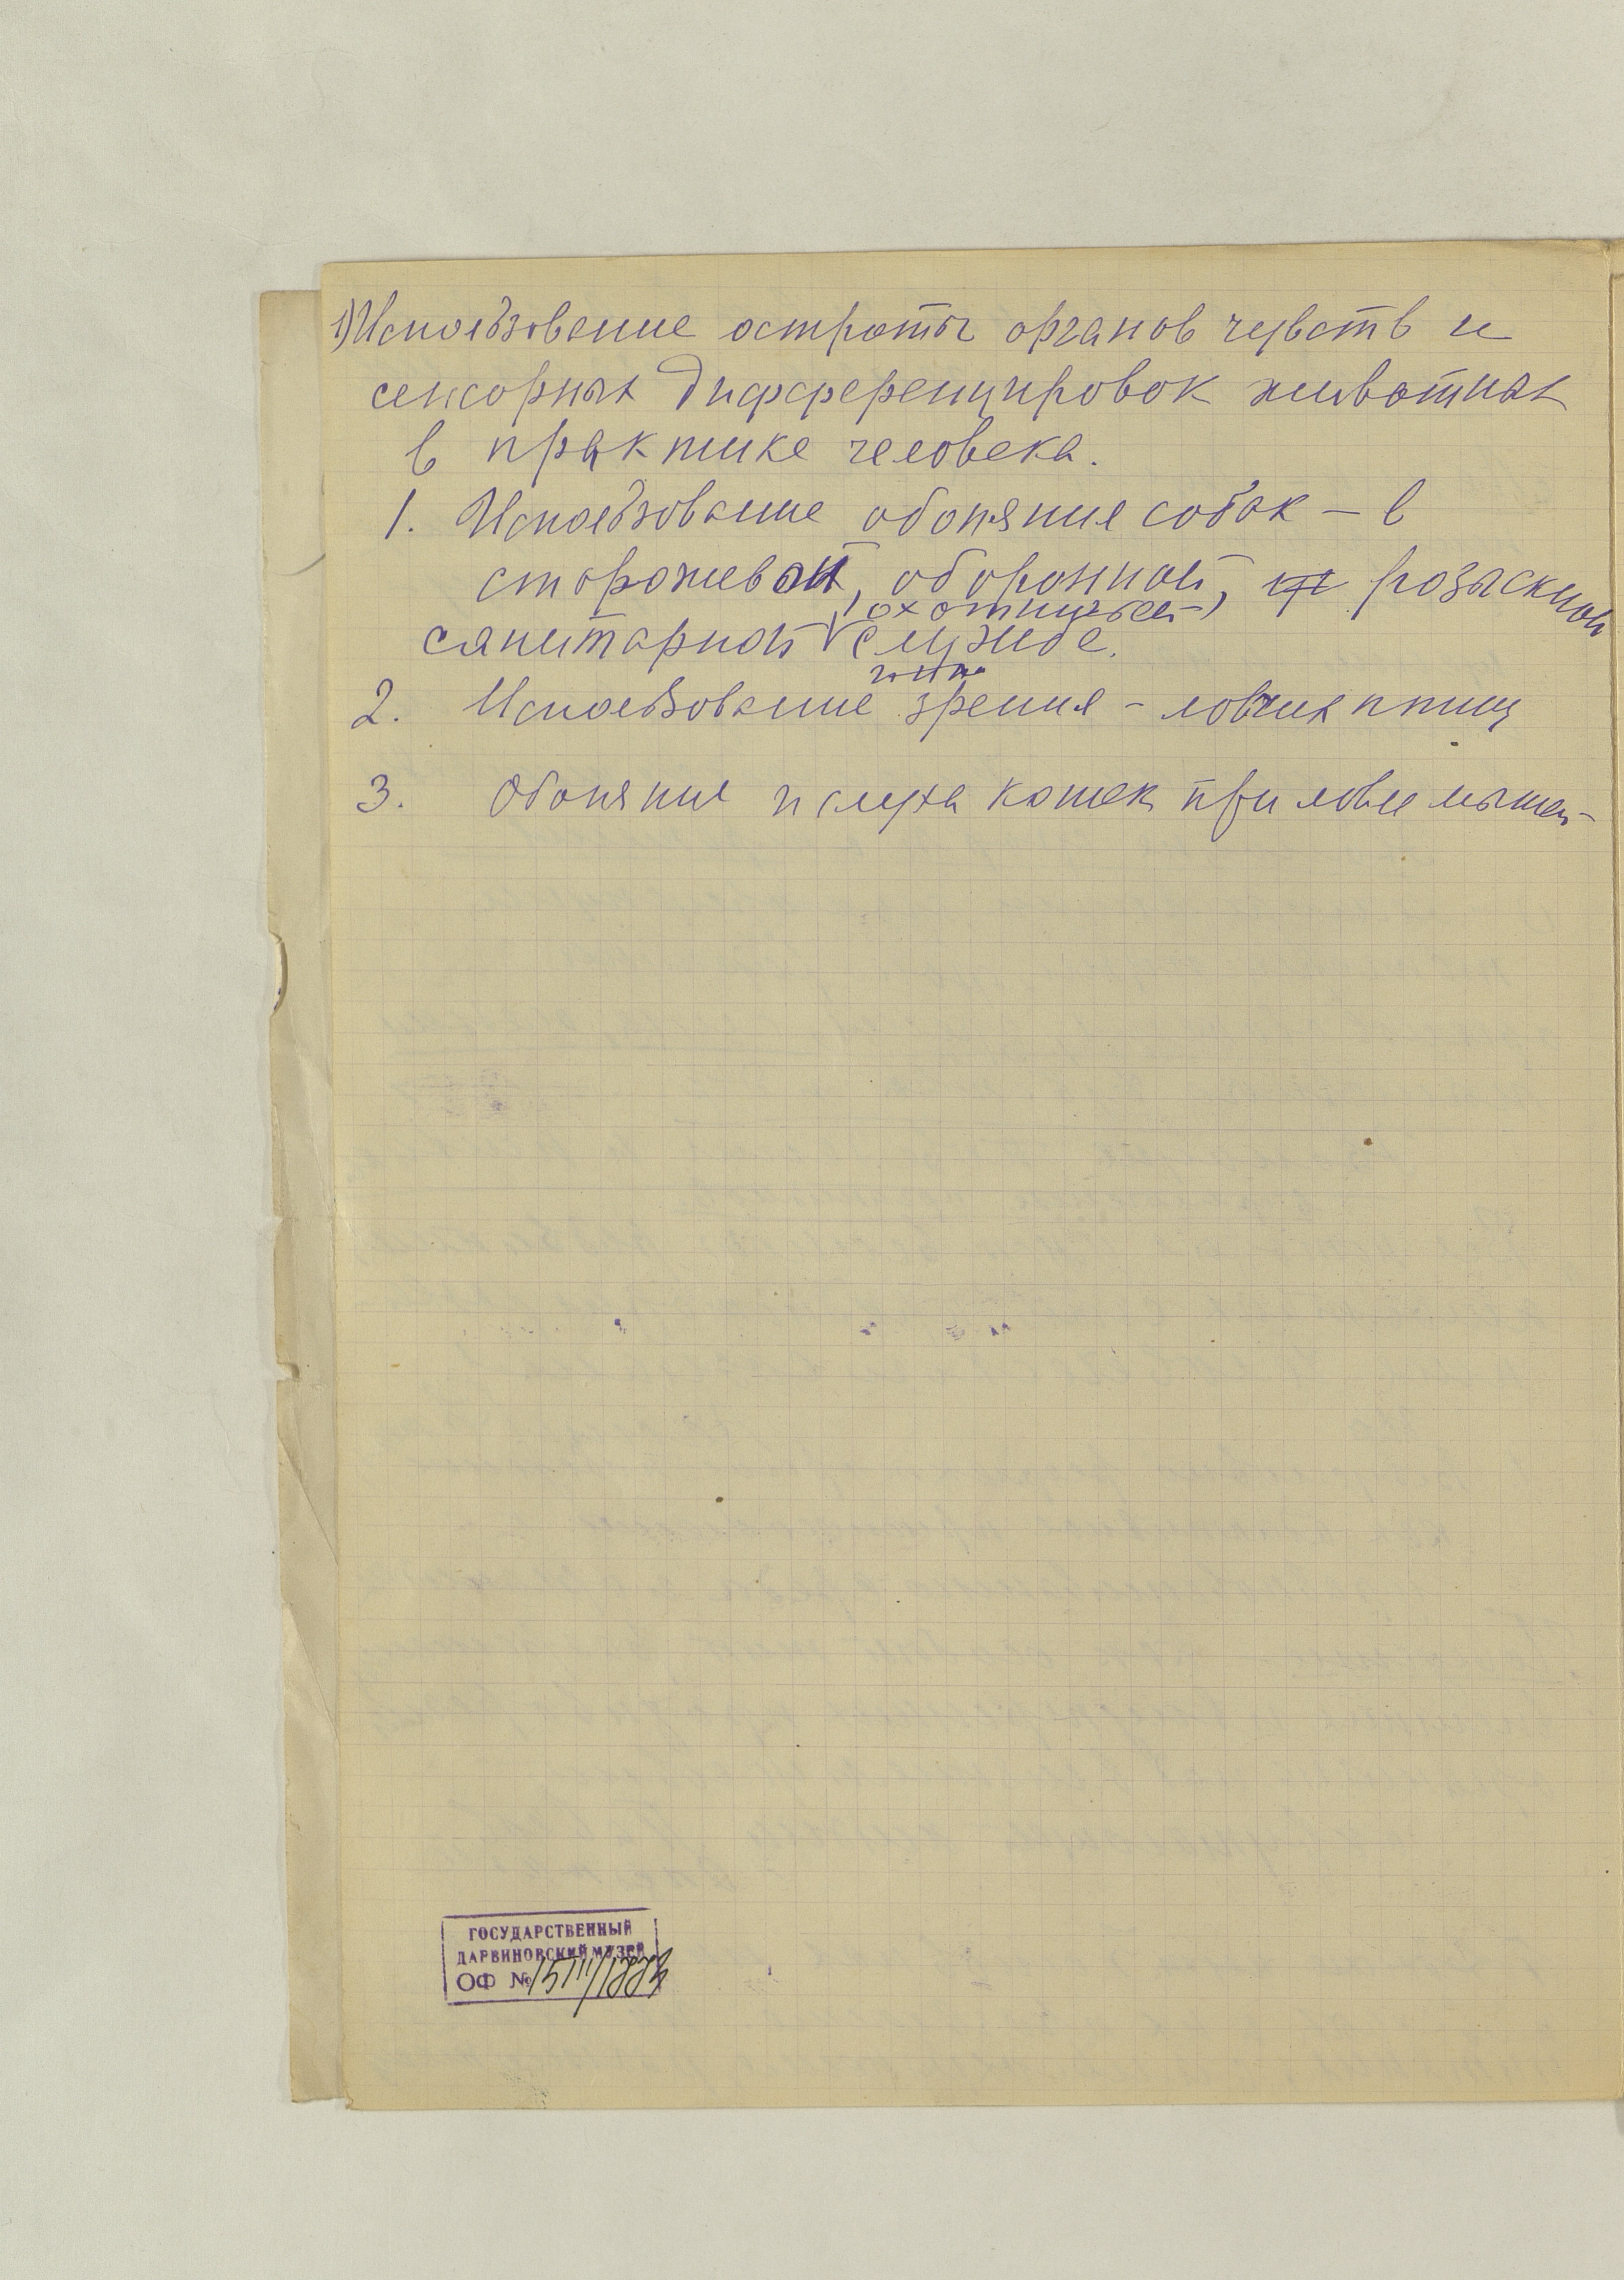 1) Использование остроты органов чувств и
сенсорных дифференцировок животных
в практике человека.
1. Использование обоняния собак – в
сторожевой, оборонной, розыскной
, охотничьей
санитарной службе.
2. Использование зрения – ловчих птиц
3. Обоняния и слуха кошек при ловле мышей
ГОСУДАРСТВЕННЫЙ
ДАРВИНОВСКИЙ МУЗЕЙ
ОФ №